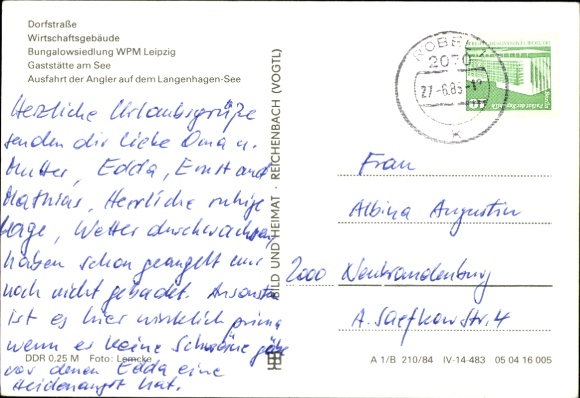 Dorfstraße
Wirtschaftsgebäude
Bungalowsiedlung WPM Leipzig
Gaststätte am See
Ausfahrt der Angler auf dem Langenhagen-See
Herzliche Urlaubsgrüße
senden dir liebe Oma u.
Mutter, Edda, Ernst und
Mathias, Herrliche ruhige
Lage, Wetter durchwachsen
haben schon geangelt nur
noch nicht gebadet. Ansonsten
ist es hier wirklich prima
wenn es keine Schwäne gäbe
vor denen Edda eine
Heidenangst hat.
DDR 0,25 M Foto: Lemcke
BILD UND HEIMAT · REICHENBACH (VOGTL)
RÖBEL
2070
27.-6.85
10
Frau
Albina Augustin
2000 Neubrandenburg
A. Saefkow Str. 4
A 1/B 210/84 IV-14-483 05 04 16 005